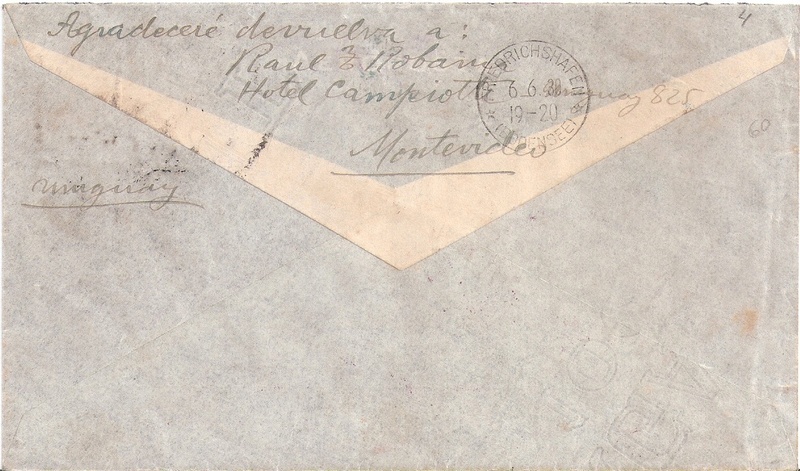 4
Agradeceré devuelva a:
Raul
Hotel Campiotti 825
Montevideo
Uruguay
60
FRIEDRICHSHAFEN
6.6.30
19-20
(BODENSEE)